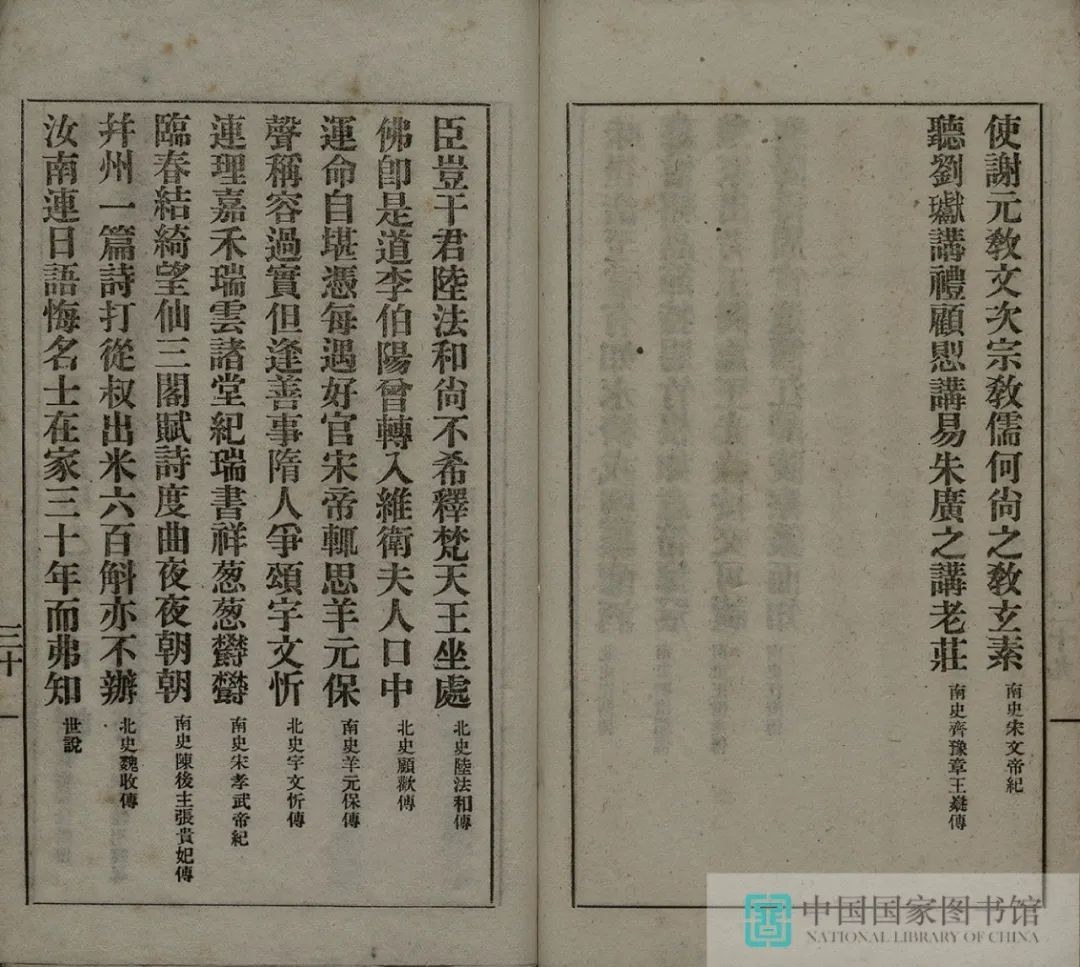 使謝元教文次宗教儒何尙之教玄素 南史宋文帝紀
聽劉瓛講禮顧愳講易朱廣之講老莊 南史齊豫章王嶷傳
臣豈干君陸法和尙不希釋梵天王坐處 北史陸法和傳
佛卽是道李伯陽曾轉入維衛夫人口中 北史顧歡傳
運命自堪憑每遇好官宋帝輒思羊元保 南史羊元保傳
聲稱容過實但逢善事隋人爭頌宇文忻 北史宇文忻傳
連理嘉禾瑞雲諸堂紀瑞書祥葱葱欝欝 南史宋孝武帝紀
臨春結綺望仙三閣賦詩度曲夜夜朝朝 南史陳後主張貴妃傳
幷州一篇詩打從叔出米六百斛亦不辦 北史魏收傳
汝南連日語悔名士在家三十年而弗知 世說
三十
中国国家图书馆
NATIONAL LIBRARY OF CHINA